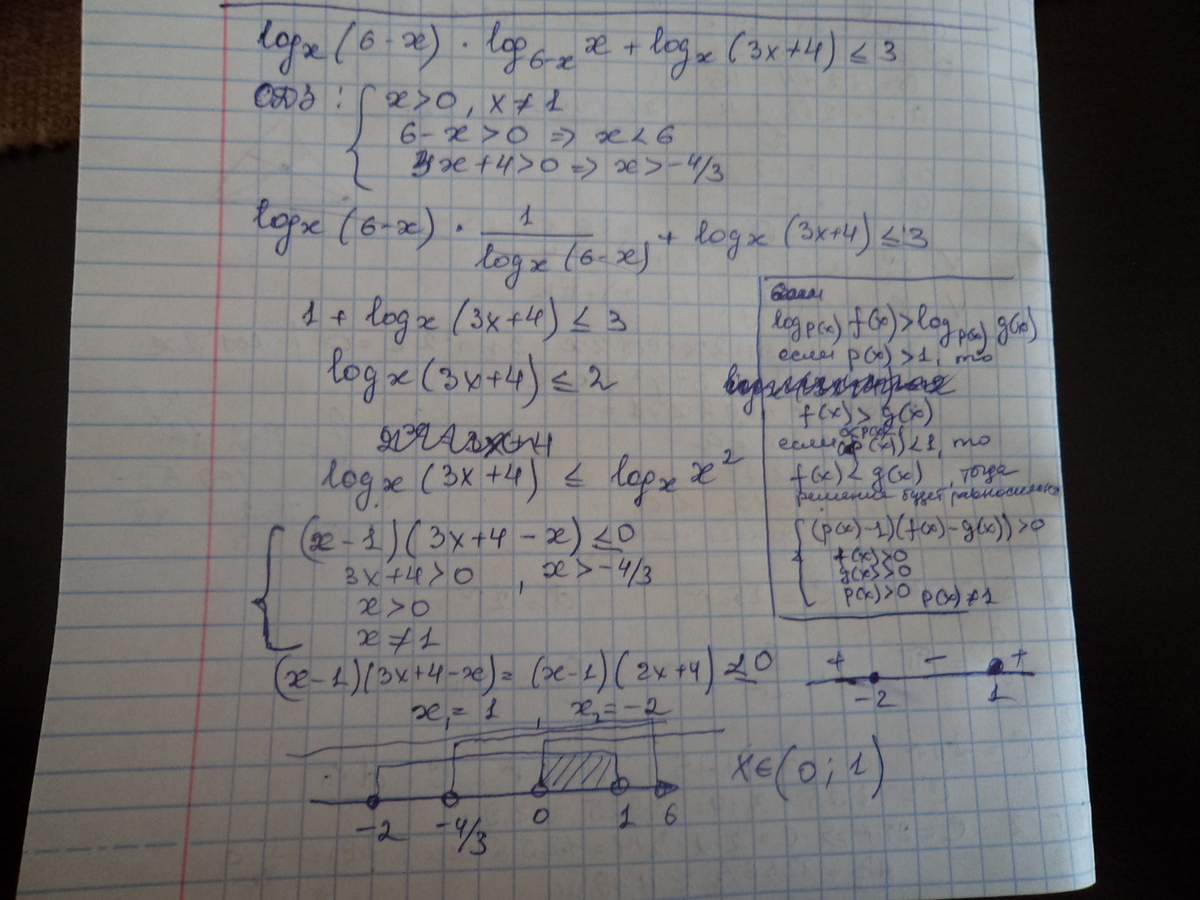 log_x (6-x) · log_{6-x} x + log_x (3x+4) ≤ 3
ОДЗ : { x>0, x≠1
6-x>0 => x<6
3x+4>0 => x>-4/3
log_x (6-x) · 1/log_x (6-x) + log_x (3x+4) ≤ 3
1 + log_x (3x+4) ≤ 3
log_x (3x+4) ≤ 2
log_x (3x+4) ≤ log_x x²
{ (x-1)(3x+4-x) ≤0
3x+4>0 , x>-4/3
x>0
x≠1
(x-1)(3x+4-x) = (x-1)(2x+4) ≤0
x₁=1 , x₂=-2
+ - +
-2 1
-2 -4/3 0 1 6
x∈(0; 1)
log_{p(x)} f(x) > log_{p(x)} g(x)
если p(x) >1, то
f(x) > g(x)
если p(x) <1, то
f(x) < g(x) , тогда
решение будет равносильно
{ (p(x)-1)(f(x)-g(x)) >0
f(x)>0
g(x)>0
p(x)>0 p(x)≠1